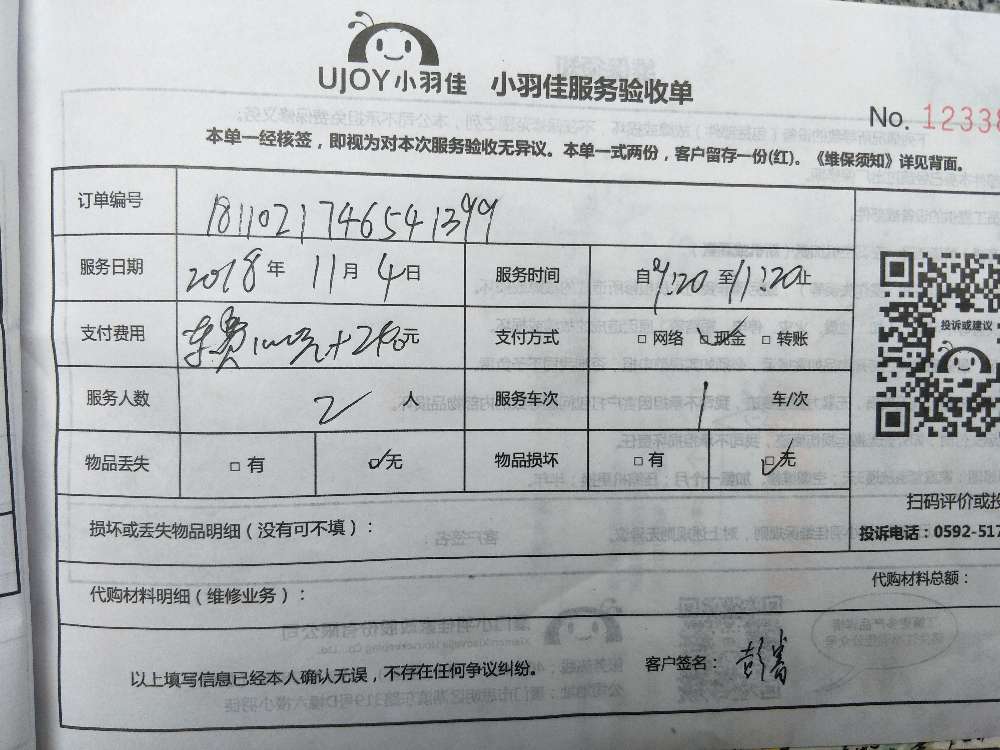 UJOY小羽佳 小羽佳服务验收单
No. 12338
本单一经核签，即视为对本次服务验收无异议。本单一式两份，客户留存一份(红)。《维保须知》详见背面。
订单编号 1811021746541399
服务日期 2018年 11月 4日 服务时间 自9:20至11:20止
支付费用 车费 元+ 元 支付方式 □ 网络 □ 现金 □ 转账
服务人数 2 人 服务车次 1 车/次
物品丢失 □ 有 □ 无 物品损坏 □ 有 □ 无
投诉或建议
扫码评价或投
损坏或丢失物品明细（没有可不填）：
投诉电话：0592-517
代购材料明细（维修业务）： 代购材料总额：
以上填写信息已经本人确认无误，不存在任何争议纠纷。 客户签名：彭